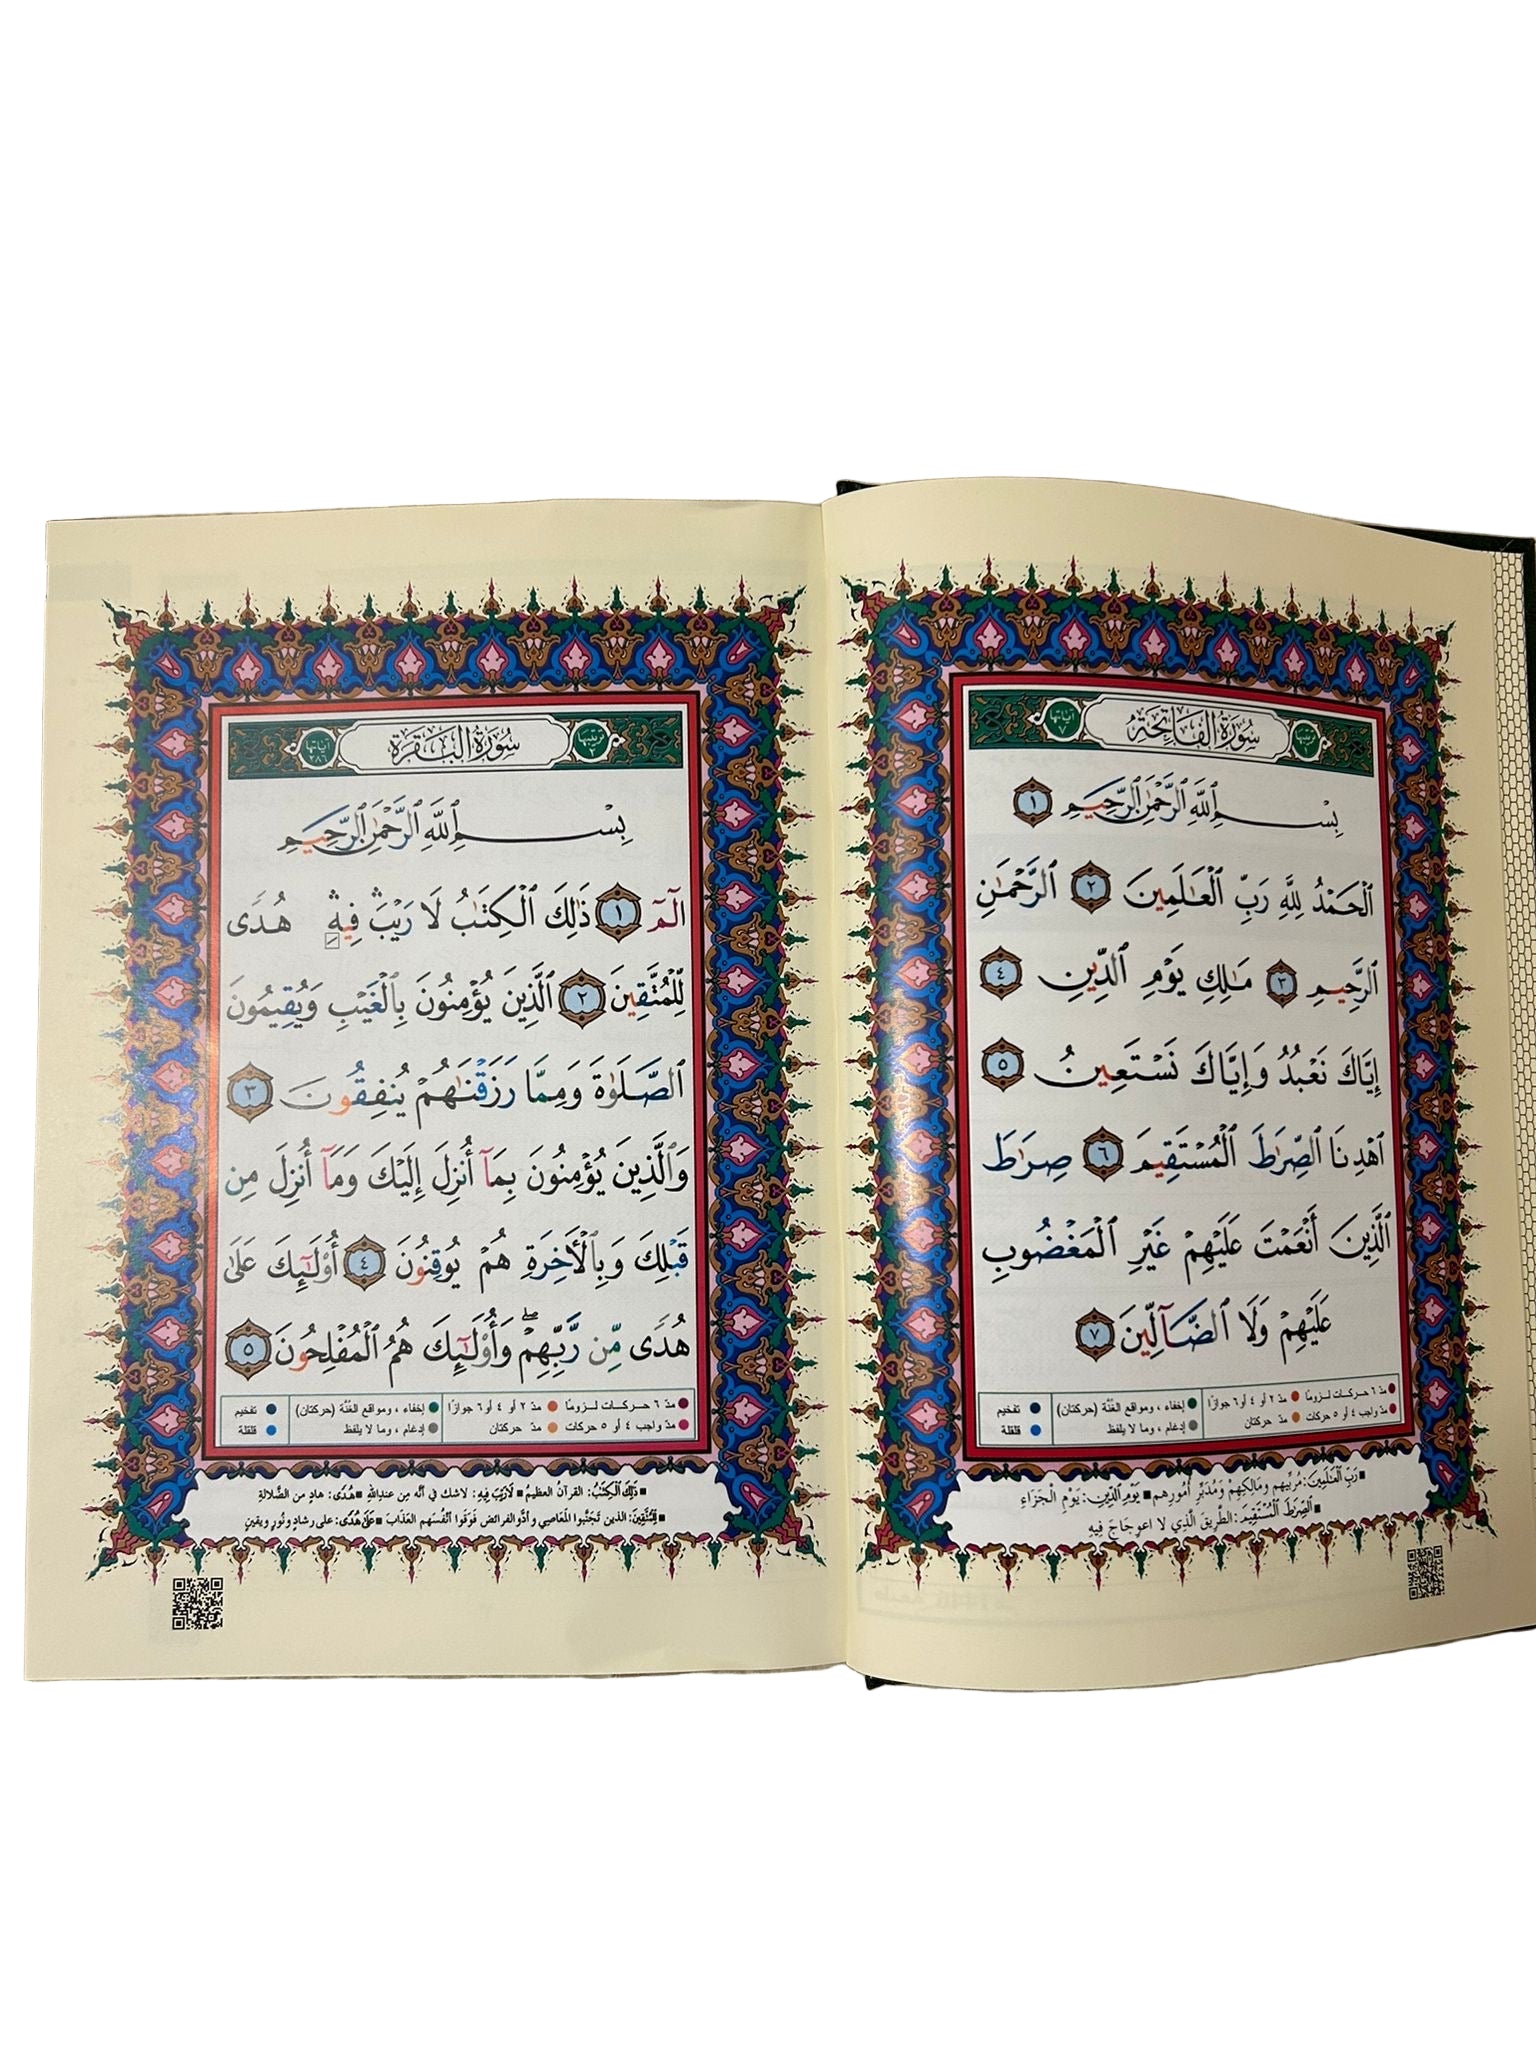 ترتيبها ١
سُورَةُ الفَاتِحَةِ
آياتها ٧
بِسْمِ ٱللَّهِ ٱلرَّحْمَٰنِ ٱلرَّحِيمِ ١
ٱلْحَمْدُ لِلَّهِ رَبِّ ٱلْعَٰلَمِينَ ٢ ٱلرَّحْمَٰنِ
ٱلرَّحِيمِ ٣ مَٰلِكِ يَوْمِ ٱلدِّينِ ٤
إِيَّاكَ نَعْبُدُ وَإِيَّاكَ نَسْتَعِينُ ٥
ٱهْدِنَا ٱلصِّرَٰطَ ٱلْمُسْتَقِيمَ ٦ صِرَٰطَ
ٱلَّذِينَ أَنْعَمْتَ عَلَيْهِمْ غَيْرِ ٱلْمَغْضُوبِ
عَلَيْهِمْ وَلَا ٱلضَّآلِّينَ ٧
مدّ ٦ حركات لزومًا مدّ ٢ أو ٤ أو ٦ جوازًا إخفاء ، ومواقع الغُنَّة (حركتان) تفخيم
مدّ واجب ٤ أو ٥ حركات مدّ حركتان إدغام ، وما لا يلفظ قلقلة
رَبِّ ٱلْعَٰلَمِينَ: مُرَبِّيهِم ومَالِكِهِمْ وَمُدَبِّرِ أُمُورِهِم يَوْمِ ٱلدِّينِ: يَوْمِ الْجَزَاءِ
ٱلصِّرَٰطَ ٱلْمُسْتَقِيمَ: الطَّرِيقَ الَّذِي لا اعوِجَاجَ فِيهِ
ترتيبها ٢
سُورَةُ البَقَرَةِ
آياتها ٢٨٦
بِسْمِ ٱللَّهِ ٱلرَّحْمَٰنِ ٱلرَّحِيمِ
الٓمٓ ١ ذَٰلِكَ ٱلْكِتَٰبُ لَا رَيْبَ ۛ فِيهِ ۛ هُدًى
لِّلْمُتَّقِينَ ٢ ٱلَّذِينَ يُؤْمِنُونَ بِٱلْغَيْبِ وَيُقِيمُونَ
ٱلصَّلَوٰةَ وَمِمَّا رَزَقْنَٰهُمْ يُنفِقُونَ ٣
وَٱلَّذِينَ يُؤْمِنُونَ بِمَآ أُنزِلَ إِلَيْكَ وَمَآ أُنزِلَ مِن
قَبْلِكَ وَبِٱلْأَخِرَةِ هُمْ يُوقِنُونَ ٤ أُوْلَٰٓئِكَ عَلَىٰ
هُدًى مِّن رَّبِّهِمْ ۖ وَأُوْلَٰٓئِكَ هُمُ ٱلْمُفْلِحُونَ ٥
مدّ ٦ حركات لزومًا مدّ ٢ أو ٤ أو ٦ جوازًا إخفاء ، ومواقع الغُنَّة (حركتان) تفخيم
مدّ واجب ٤ أو ٥ حركات مدّ حركتان إدغام ، وما لا يلفظ قلقلة
ذَٰلِكَ ٱلْكِتَٰبُ: القرآنُ العظيمُ لَا رَيْبَ فِيهِ: لاشك في أنّه مِن عندِاللهِ هُدًى: هادٍ من الضَّلالةِ
لِّلْمُتَّقِينَ: الذين تَجَنَّبوا المَعَاصِي وأدَّوا الفرائض فَوَقَوا أنْفُسَهم العَذَابَ عَلَىٰ هُدًى: على رشادٍ ونُورٍ ويقينٍ